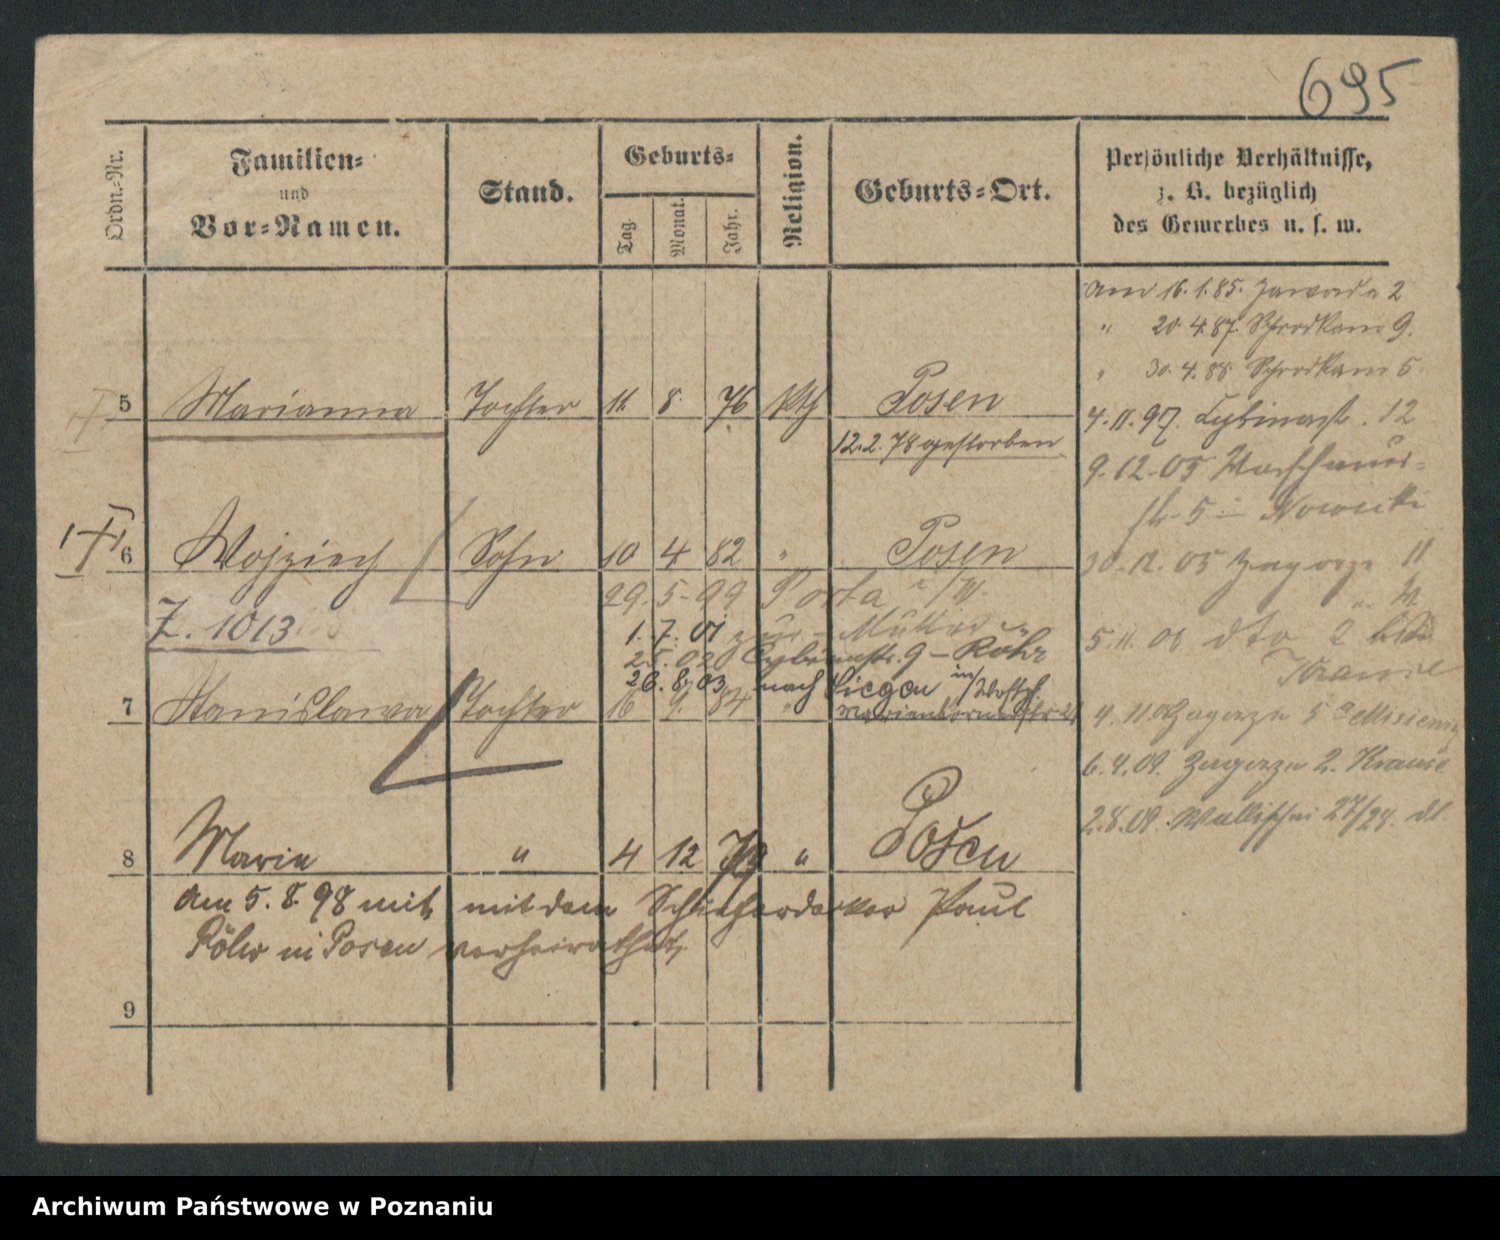 695
Ordn.-Nr.
Familien-
und
Vor-Namen.
Stand.
Geburts-
Tag.
Monat.
Jahr.
Religion.
Geburts-Ort.
Persönliche Verhältnisse,
z. B. bezüglich
des Gewerbes u. s. w.
Am 16.1.85. Zawade 2
" 20.4.87. Schrodkam 9.
" 30.4.88 Schrodkam 5.
4.11.97. Cybinastr. 12
9.12.05 Warschauer-
str. 5 Nowicki
30.12.05 Zagorze 11
5.11.06 dto 2
Krause
4.11.08 Zagorze 5
6.4.09. Zagorze 2. Krause
2.8.09. Wallischei 27/28.
5 Marianna Tochter 11. 8. 76 kth Posen
12.2.78 gestorben
6 Wojziech Sohn 10 4 82 " Posen
29.5.99 Porta i/W.
Z. 1013
1.7.01 zur Mutter
02 Cybinastr. 9 - Röhr
26.8.03 nach Siegen in/Westf.
7 Stanislawa Tochter 16 9. 84 "
8 Marie " 4 12 79 " Posen
Am 5.8.98 mit mit dem Paul
Röhr in Posen verheirathet,
9
Archiwum Państwowe w Poznaniu